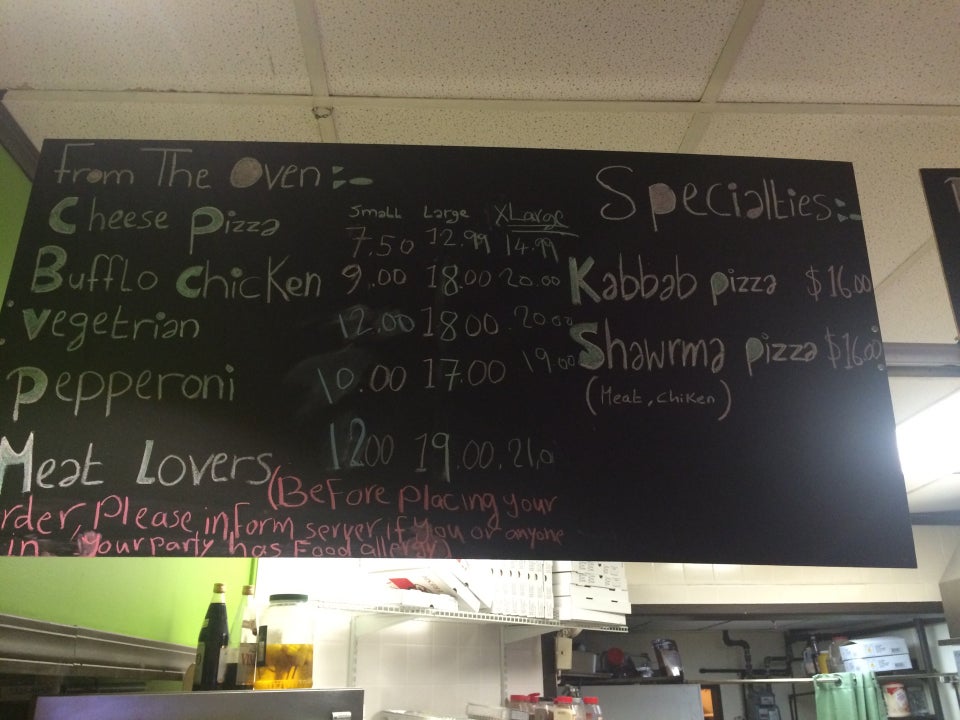 From The Oven :-
Small Large XLarge
Cheese Pizza 7.50 12.99 14.99
Bufflo chicken 9.00 18.00 20.00
Vegetrian 12.00 18.00 20.00
Pepperoni 10.00 17.00 19.00
Meat Lovers 12.00 19.00 21,0
(Before placing your
rder, Please inform server if you or anyone
in your party has Food allergy)
Specialties:-
Kabbab pizza $16.00
Shawrma pizza $16.00
(Meat, Chiken)